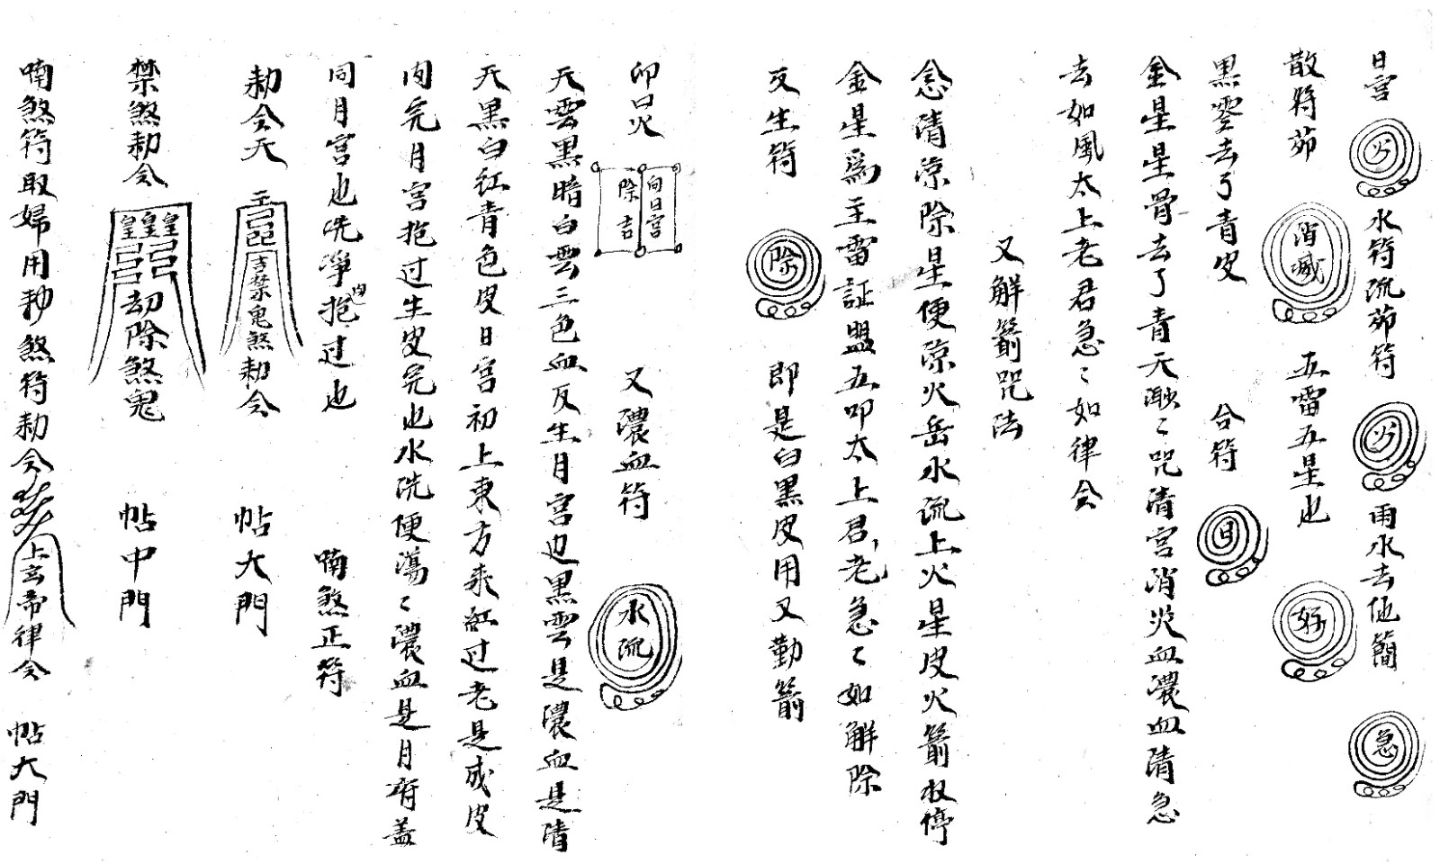 日宮 火 水符流茆符 火 雨水去他簡 急
散符茆 消滅 五雷五星也 好
黑雲去了青皮 合符 日
金星星骨去了青天融〻咒清宮消災血濃血清急
去如風太上老君急〻如律令
又解箭咒法
念清涼除星便涼火岳水流上火星皮火箭收停
金星為主雷証盟五叩太上君老急〻如解除
反生符 除 即是白黑皮用又勤箭
卯 向日宮除吉 又濃血符 水流
天雲黑暗白雲三色血反生月宮边黑雲是濃血是清
天黑白紅青色皮日宮初上東方来紅过老是成皮
肉完月宮抱过生皮完也水洗便蕩〻濃血是月有蓋
同月宮也洗凈抱肉过也 喃煞正符
勅令天 吉禁鬼煞勅令 帖大門
禁煞勅令 皇皇皇 刧除煞鬼 帖中門
喃煞符取婦用勅煞符勅令 上玄帝律令 帖大門